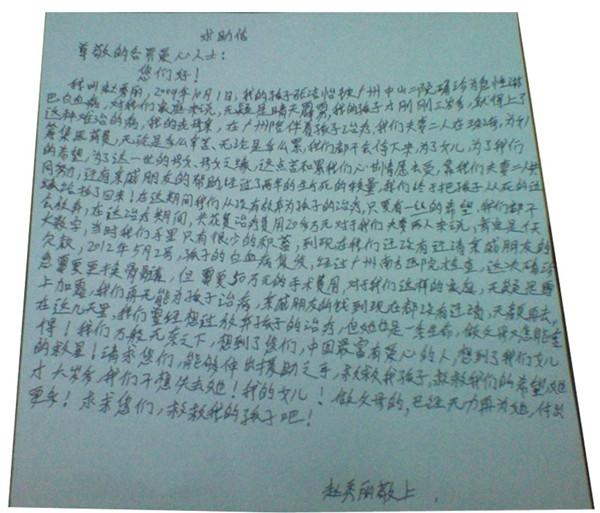 求助信
尊敬的各界爱心人士：
您们好！
我叫赵秀丽，2009年10月1日，我的孩子张洁怡被广州中山二院确诊为急性淋
巴白血病，对我们家庭来说，无疑是晴天霹雳，我的孩子才刚刚三岁多，就得上了
这种难治的病，我的丈夫，在广州陪伴着孩子治疗，我们夫妻二人在，为女儿
筹集医药费，无论是多么辛苦，无论是多么累，我们都不会停下来，为了女儿，为了我们
的希望，为了这一世的母女、父女之缘，这点苦和累我们心甘情愿去受，靠我们夫妻二人共
同努力，还有亲戚朋友的帮助经过了两年的生与死的较量，我们终于把孩子从死的边
缘给拉了回来！在这期间我们从没有放弃为孩子的治疗，只要有一丝的希望，我们都不
会放弃，在这治疗期间，共花费治疗费用20多万元对于我们夫妻两人来说，算是个天
大数字，当时我们手里只有很少的积蓄，到现在我们还没有还清亲戚朋友的
欠款，2012年5月2号，孩子的白血病复发，经过广州南方医院检查，这次确诊
急需要干骨髓，但需要50万元的手术费用，对于我们这样的家庭，无疑是雪
上加霜，我们再无能为孩子治病，亲戚朋友的钱到现在都没有还清，天都要
在这几天里，我们曾经想过放弃孩子的治疗，但她也是一条生命，做父母又怎能舍
得！我们万般无奈之下，想到了您们，中国最富有爱心的人，想到了我们女儿
的救星！请求您们，能够伸出援助之手，救救我孩子，救救我们的希望，她
才六岁多，我们不想失去她！我的女儿！做父母的，已经无力再为她，付出
更多！求求您们，救救我的孩子吧！
赵秀丽敬上